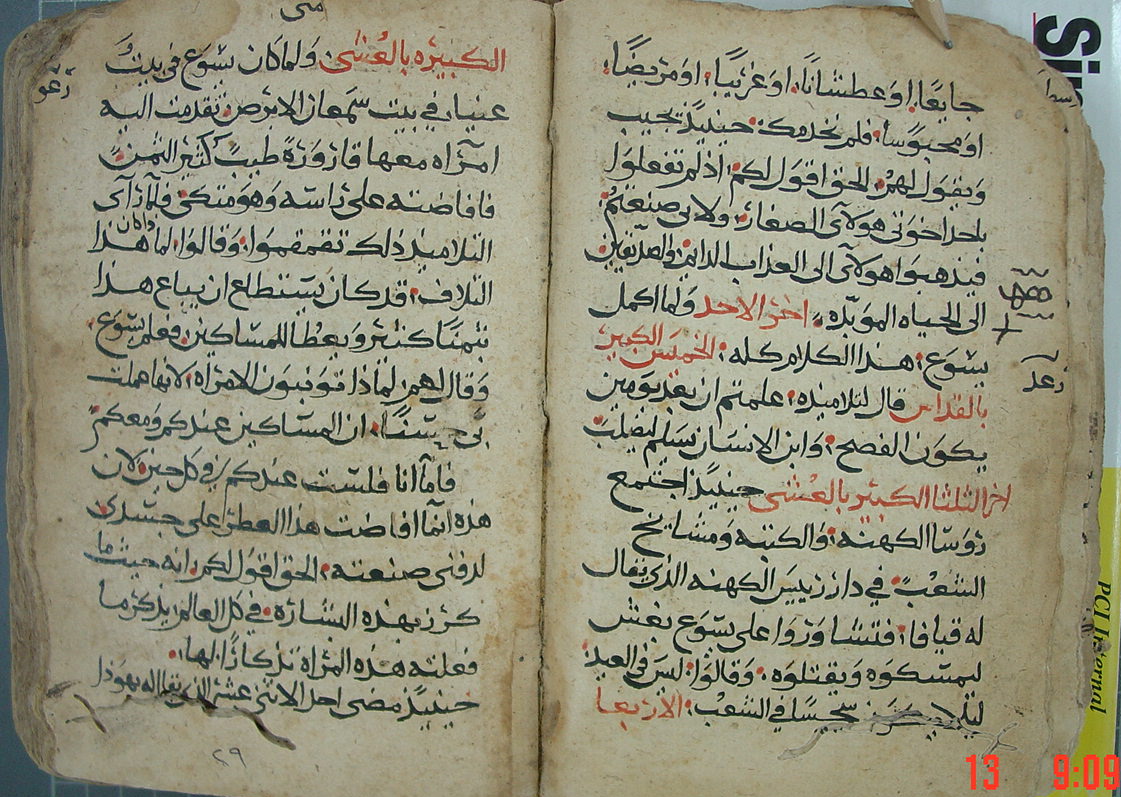 جايعًا، او عطشانًا، او غريبًا، او مريضًا،
او محبوسًا، فلم نخدمك، حينيذ يجيب
ويقول لهم، الحق اقول لكم، اذ لم تفعلوا
باحد اخوتي هولاى الصغار، ولا بى صنعتم،
فيذهبوا هولاى الى العذاب الداىم، والصديقين
الى الحياه الموبده، اخر الاحد ولما اكمل
يسوع، هذا الكلام كله، الخميس الكبير
بالقداس قال لتلاميذه، علمتم ان بعد يومين
يكون الفصح، وابن الانسان يسلم ليصلب
اخر الثلثا الكبير بالعشى حينيذ اجتمع
روسا الكهنه، والكتبه ومشايخ
الشعب، في دار رييس الكهنه الذى يقال
له قيافا، فتشاوروا على يسوع بغش
ليمسكوه ويقتلوه، وقالوا، ليس في العيد،
ليلا يكون سجيسًا في الشعب، الاربعا
رعد
متى
الكبيره بالعشى، ولما كان يسوع في بيت
عنيا، في بيت سمعان الابرص، تقدمت اليه
امراه معها قارورة طيب كثير الثمن،
فافاضته على راسه وهو متكى، فلما راى
التلاميذ ذلك تقمقموا، وقالوا، لماذا كان هذا
التلاف، قد كان يستطاع ان يباع هذا
بثمنًا كثير ويعطا للمساكين، فعلم يسوع،
وقال لهم، لماذا تونبون الامراه، لانها عملت
بى حسنًا، ان المساكين عندكم ومعكم
فاما انا فلست عندكم في كل حين، لان
هذه انما افاضت هذا العطر على جسدى
لدفنى صنعته، الحق اقول لكم، انه حيث ما
كرز بهذه البشاره، في كل العالم، يذكر ما
فعلته هذه المراة تذكارًا لها،
حينيذ مضى احد الاثنى عشر الذى يقال له يهوذا
٢٩
Si
PCI Internal
13 9:09